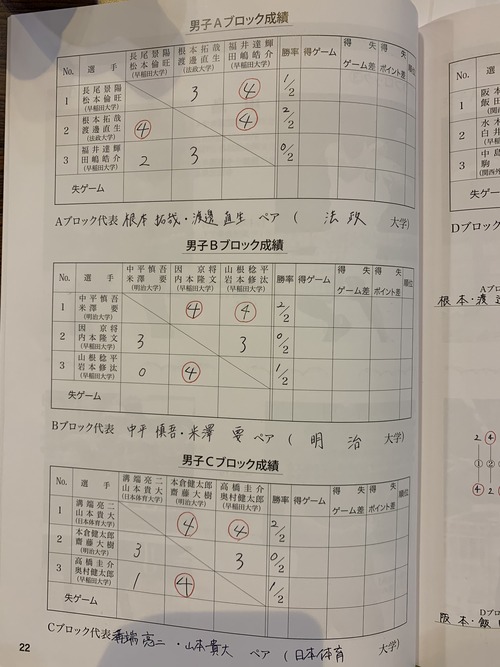 男子Aブロック成績
No. 選手 長尾景陽 松本倫旺 (早稲田大学) 根本拓哉 渡邉直生 (法政大学) 福井達輝 田嶋皓介 (早稲田大学) 勝率 得ゲーム 得失ゲーム差 得失ポイント差 順位
1 長尾景陽 松本倫旺 (早稲田大学) 3 ④ 1/2
2 根本拓哉 渡邉直生 (法政大学) ④ ④ 2/2
3 福井達輝 田嶋皓介 (早稲田大学) 2 3 0/2
失ゲーム
Aブロック代表 根本 拓哉・渡邉 直生 ペア ( 法政 大学)
男子Bブロック成績
No. 選手 中平慎吾 米澤要 (明治大学) 因京将 内本隆文 (早稲田大学) 山根稔平 岩本修汰 (早稲田大学) 勝率 得ゲーム 得失ゲーム差 得失ポイント差 順位
1 中平慎吾 米澤要 (明治大学) ④ ④ 2/2
2 因京将 内本隆文 (早稲田大学) 3 3 0/2
3 山根稔平 岩本修汰 (早稲田大学) 0 ④ 1/2
失ゲーム
Bブロック代表 中平 慎吾・米澤 要 ペア ( 明治 大学)
男子Cブロック成績
No. 選手 溝端亮二 山本貴大 (日本体育大学) 本倉健太郎 齋藤大樹 (明治大学) 高橋圭介 奥村健太郎 (早稲田大学) 勝率 得ゲーム 得失ゲーム差 得失ポイント差 順位
1 溝端亮二 山本貴大 (日本体育大学) ④ ④ 2/2
2 本倉健太郎 齋藤大樹 (明治大学) 3 3 0/2
3 高橋圭介 奥村健太郎 (早稲田大学) 1 ④ 1/2
失ゲーム
Cブロック代表 溝端 亮二・山本 貴大 ペア ( 日本体育 大学)
22
No.
1 阪本 飯田
2 水木 白井
3 中島 駒
失ゲーム
Dブロッ
Aブロ
根本・渡邉
2 ④
① ②
④ 2
Dブロ
阪本・飯田